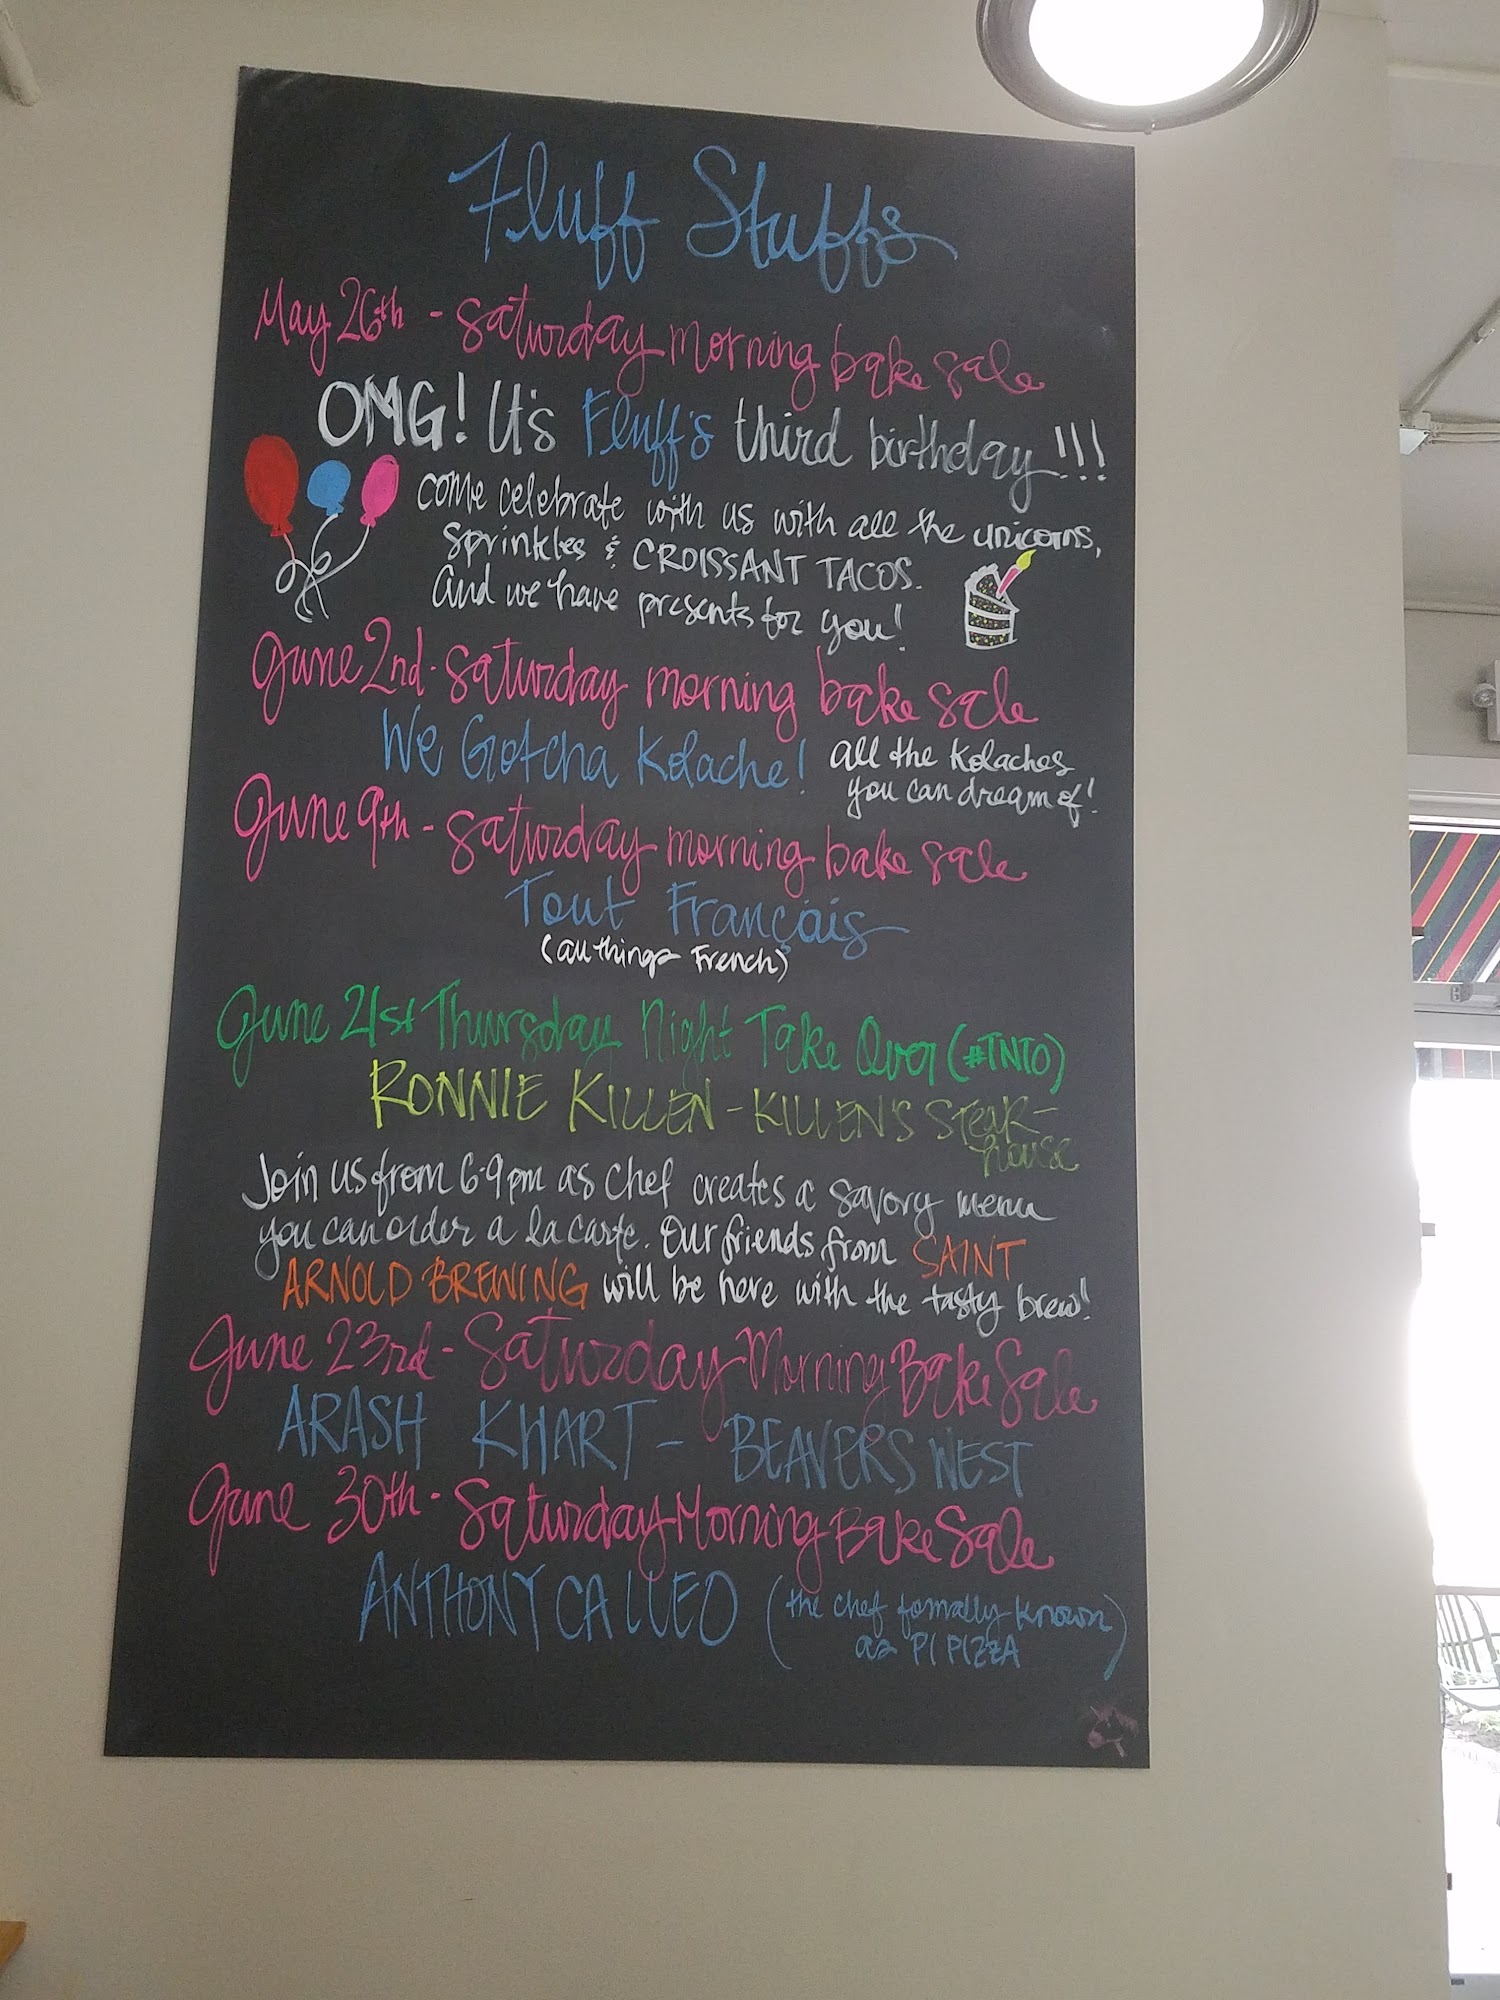 Fluff Stuffs
May 26th - Saturday morning bake sale
OMG! It's Fluff's third birthday!!!
come celebrate with us with all the unicorns,
sprinkles & CROISSANT TACOS.
and we have presents for you!
June 2nd - Saturday morning bake sale
We Gotcha Kolache! all the Kolaches
you can dream of!
June 9th - Saturday morning bake sale
Tout Français
(all things French)
June 21st Thursday Night Take Over (#TNTO)
RONNIE KILLEN - KILLEN'S STEAK-
house
Join us from 6-9pm as Chef creates a savory menu
you can order a la carte. Our friends from SAINT
ARNOLD BREWING will be here with the tasty brew!
June 23rd - Saturday Morning Bake Sale
ARASH KHART - BEAVERS WEST
June 30th - Saturday Morning Bake Sale
ANTHONY CALLEO (the chef formally known
as PI PIZZA)